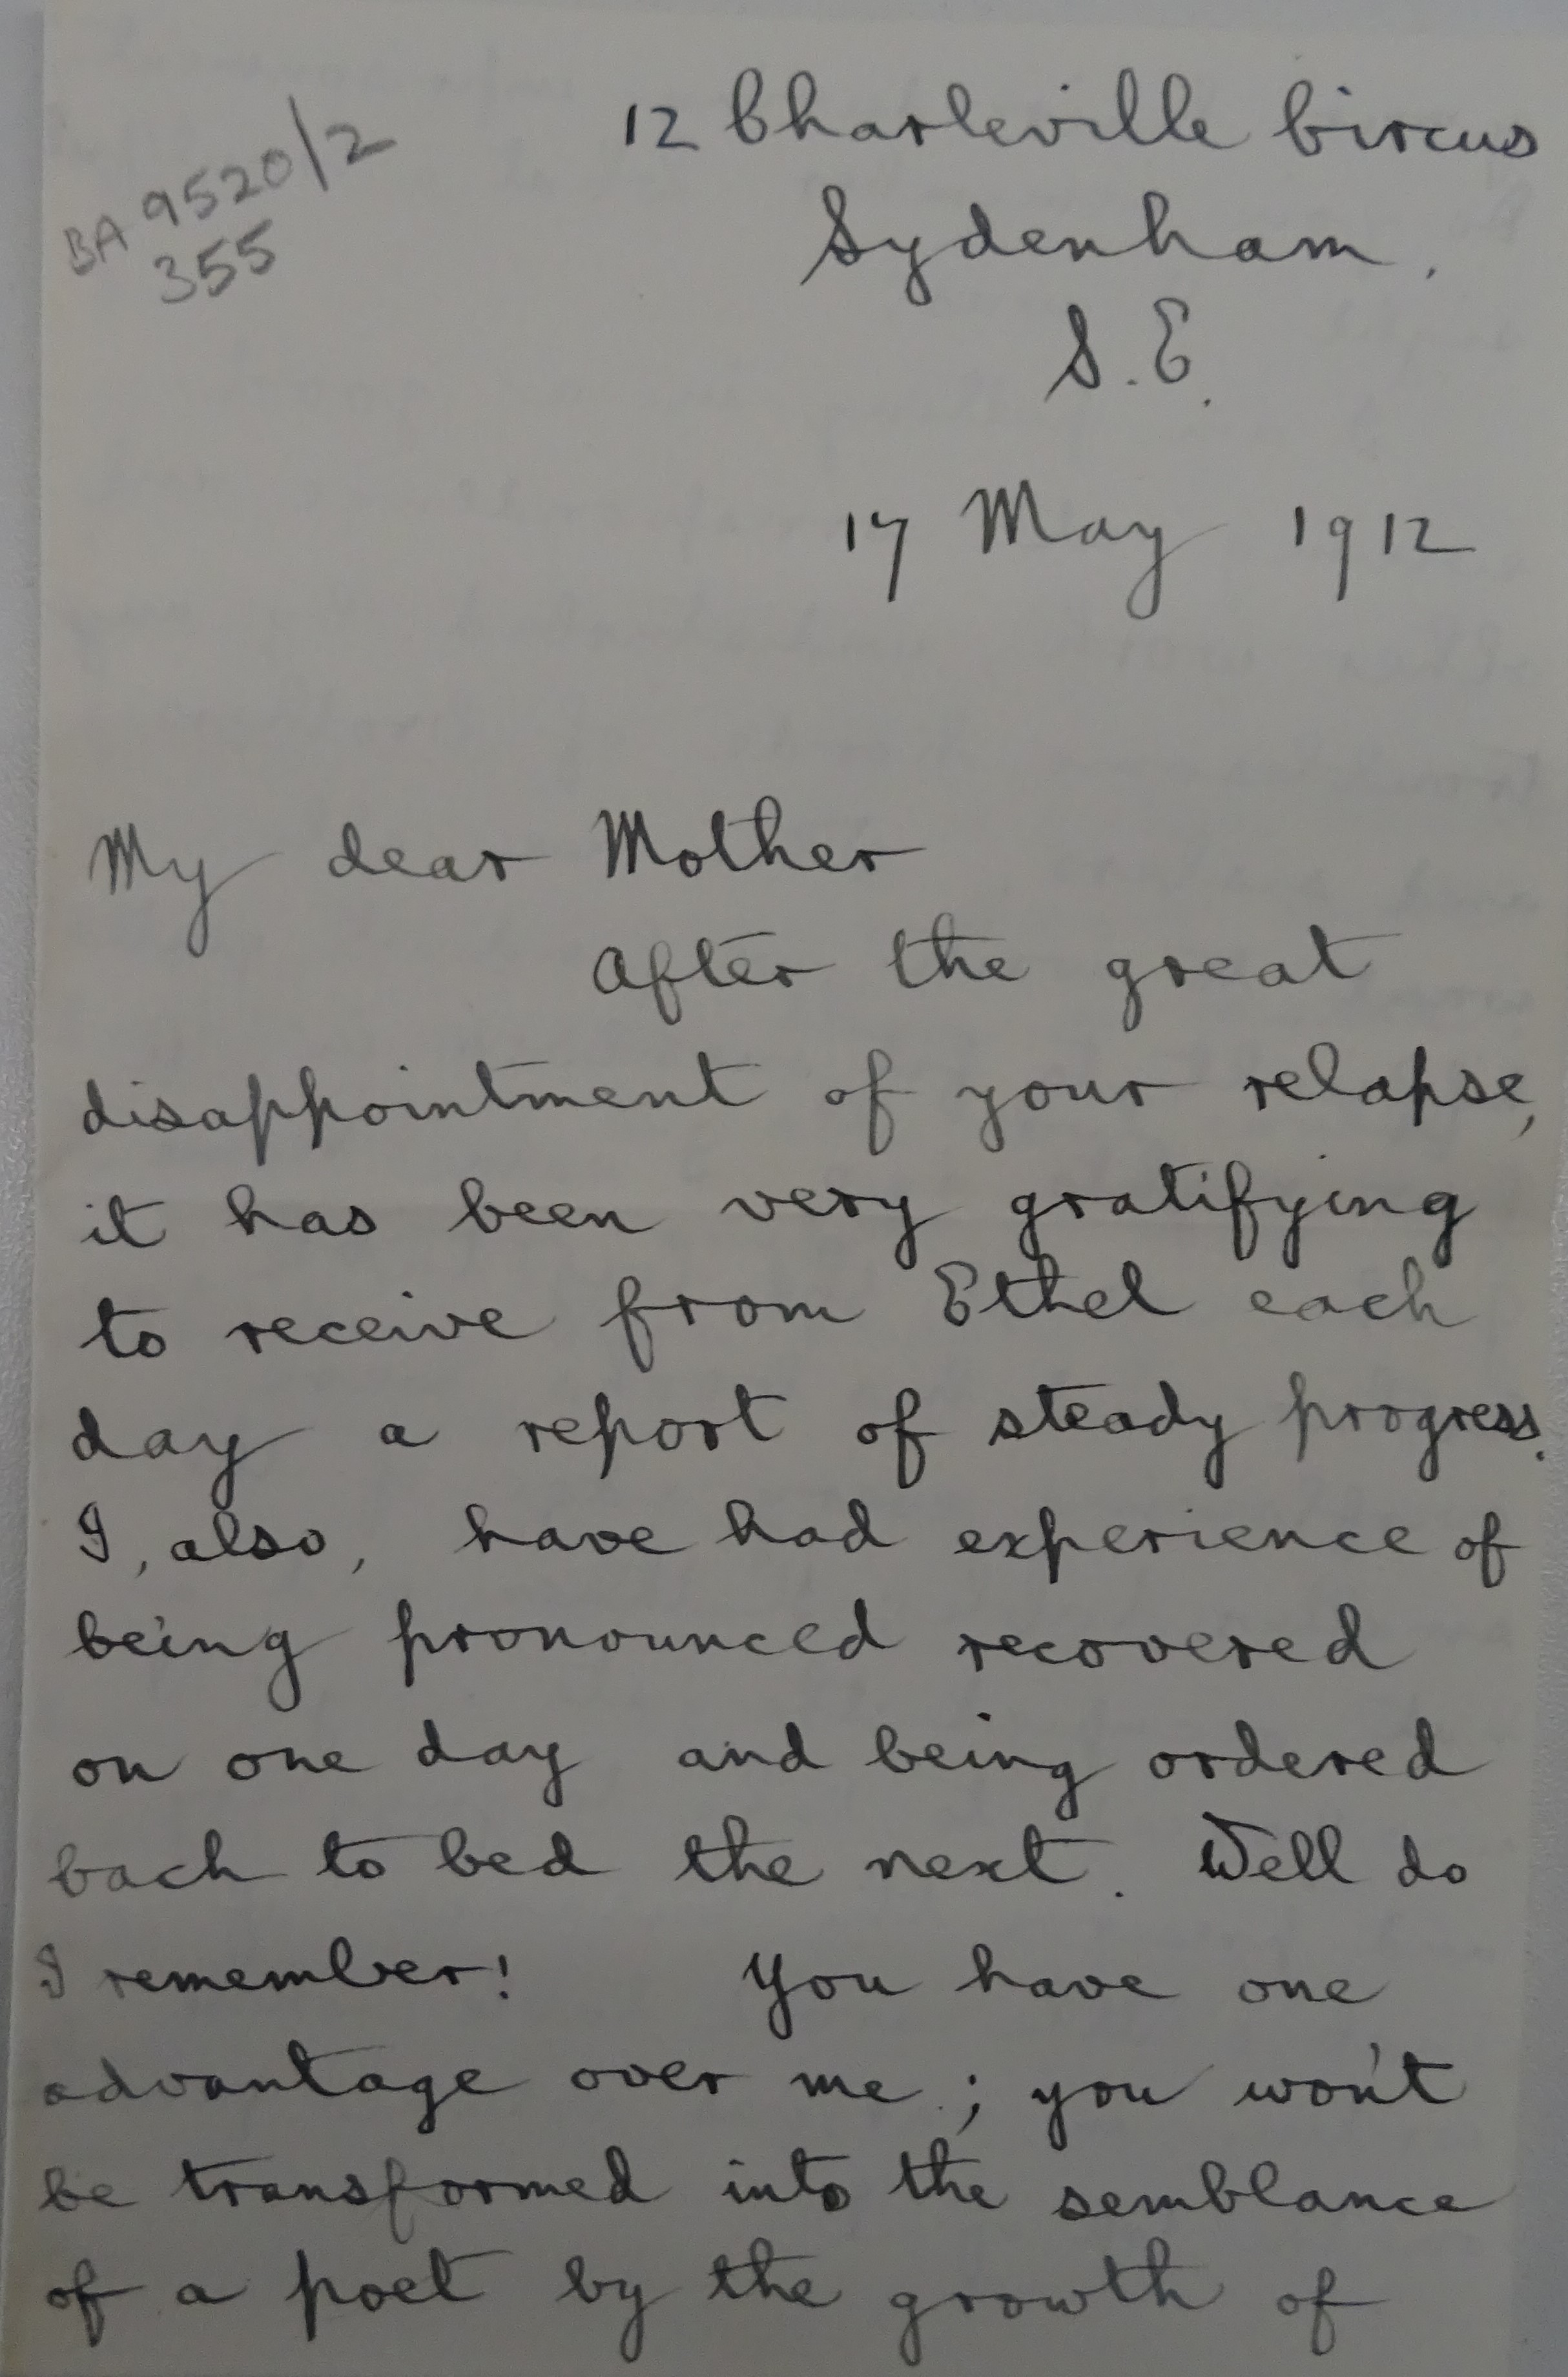 BA 9520/2
355
12 Charleville Circus
Sydenham,
S.E.
17 May 1912
My dear Mother
After the great
disappointment of your relapse,
it has been very gratifying
to receive from Ethel each
day a report of steady progress.
I, also, have had experience of
being pronounced recovered
on one day and being ordered
back to bed the next. Well do
I remember! You have one
advantage over me; you won't
be transformed into the semblance
of a poet by the growth of